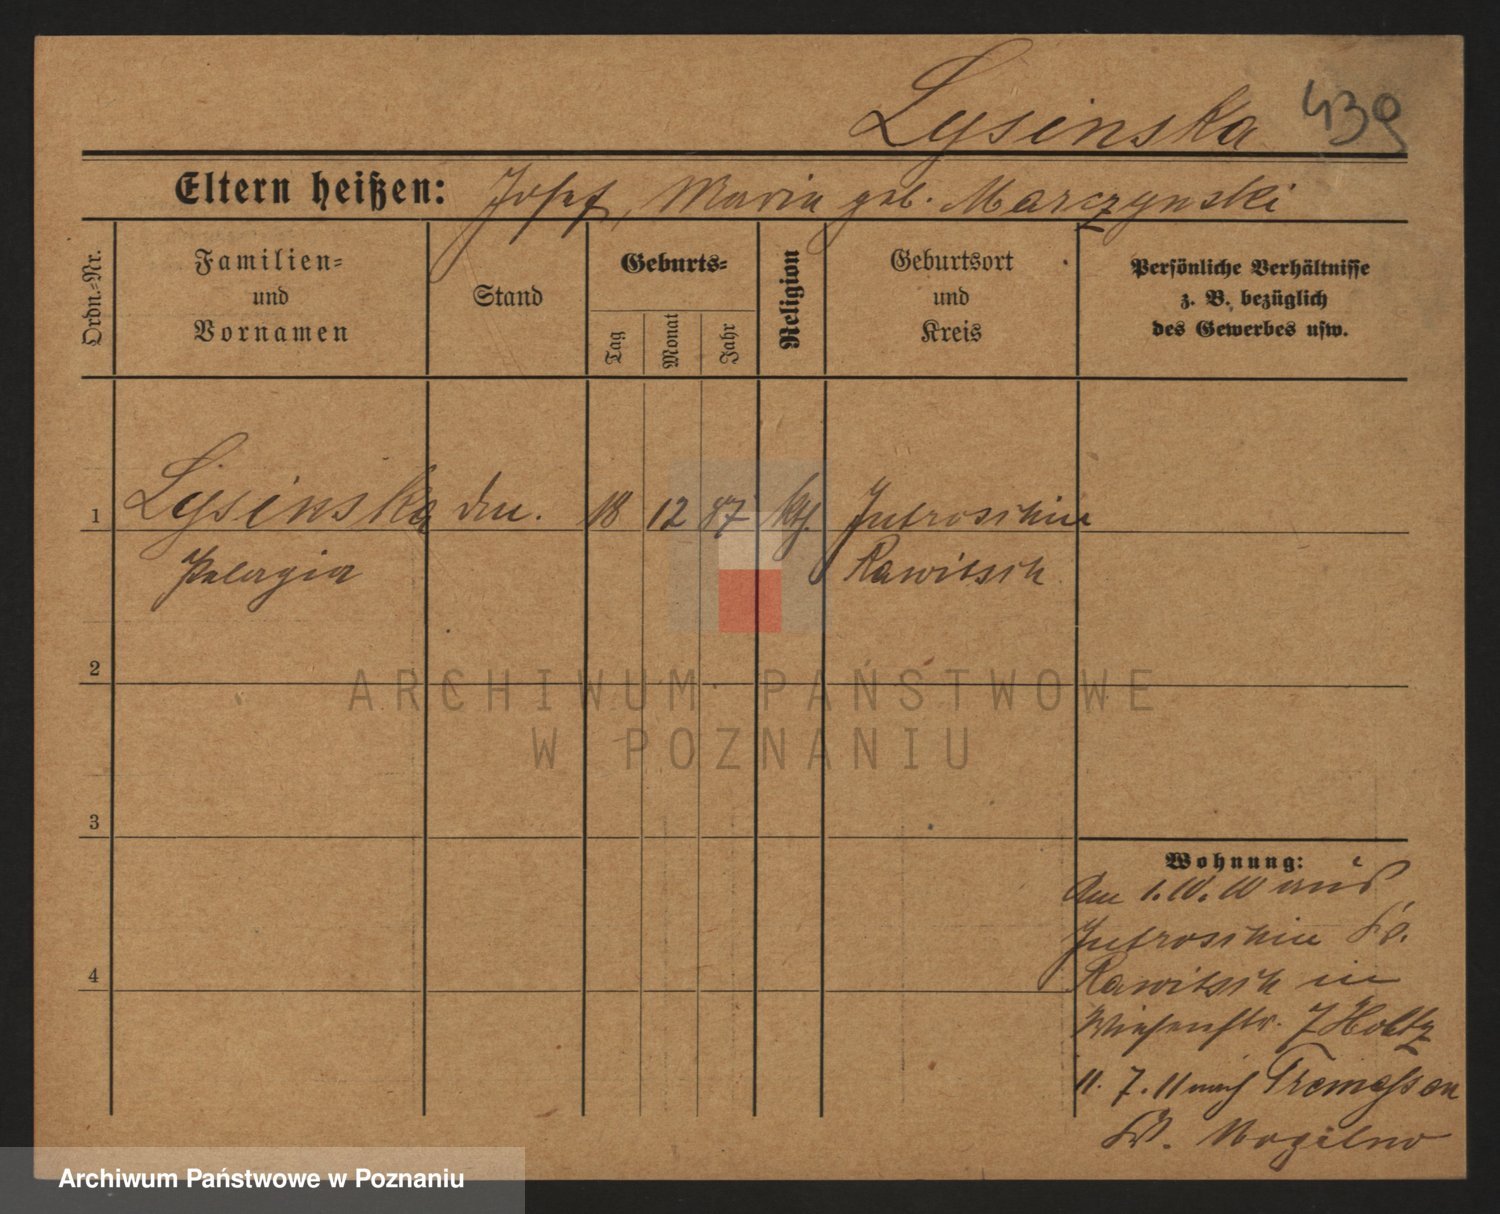 Lysinska 439
Eltern heißen: Josef, Maria geb. Marczynski
Ordn.-Nr.
Familien-
und
Vornamen
Stand
Geburts-
Tag
Monat
Jahr
Religion
Geburtsort
und
Kreis
Persönliche Verhältnisse
z. B. bezüglich
des Gewerbes usw.
1 Lysinska 18 12 87 kth. Jutroschin
Pelagia Rawitsch
2
3
4
Wohnung:
Am 1. 10. 10 aus
Jutroschin Kr.
Rawitsch in
Wiesenstr. 7 Holtz
11. 7. 11 nach Tremessen
Kr. Mogilno
ARCHIWUM PAŃSTWOWE
W POZNANIU
Archiwum Państwowe w Poznaniu